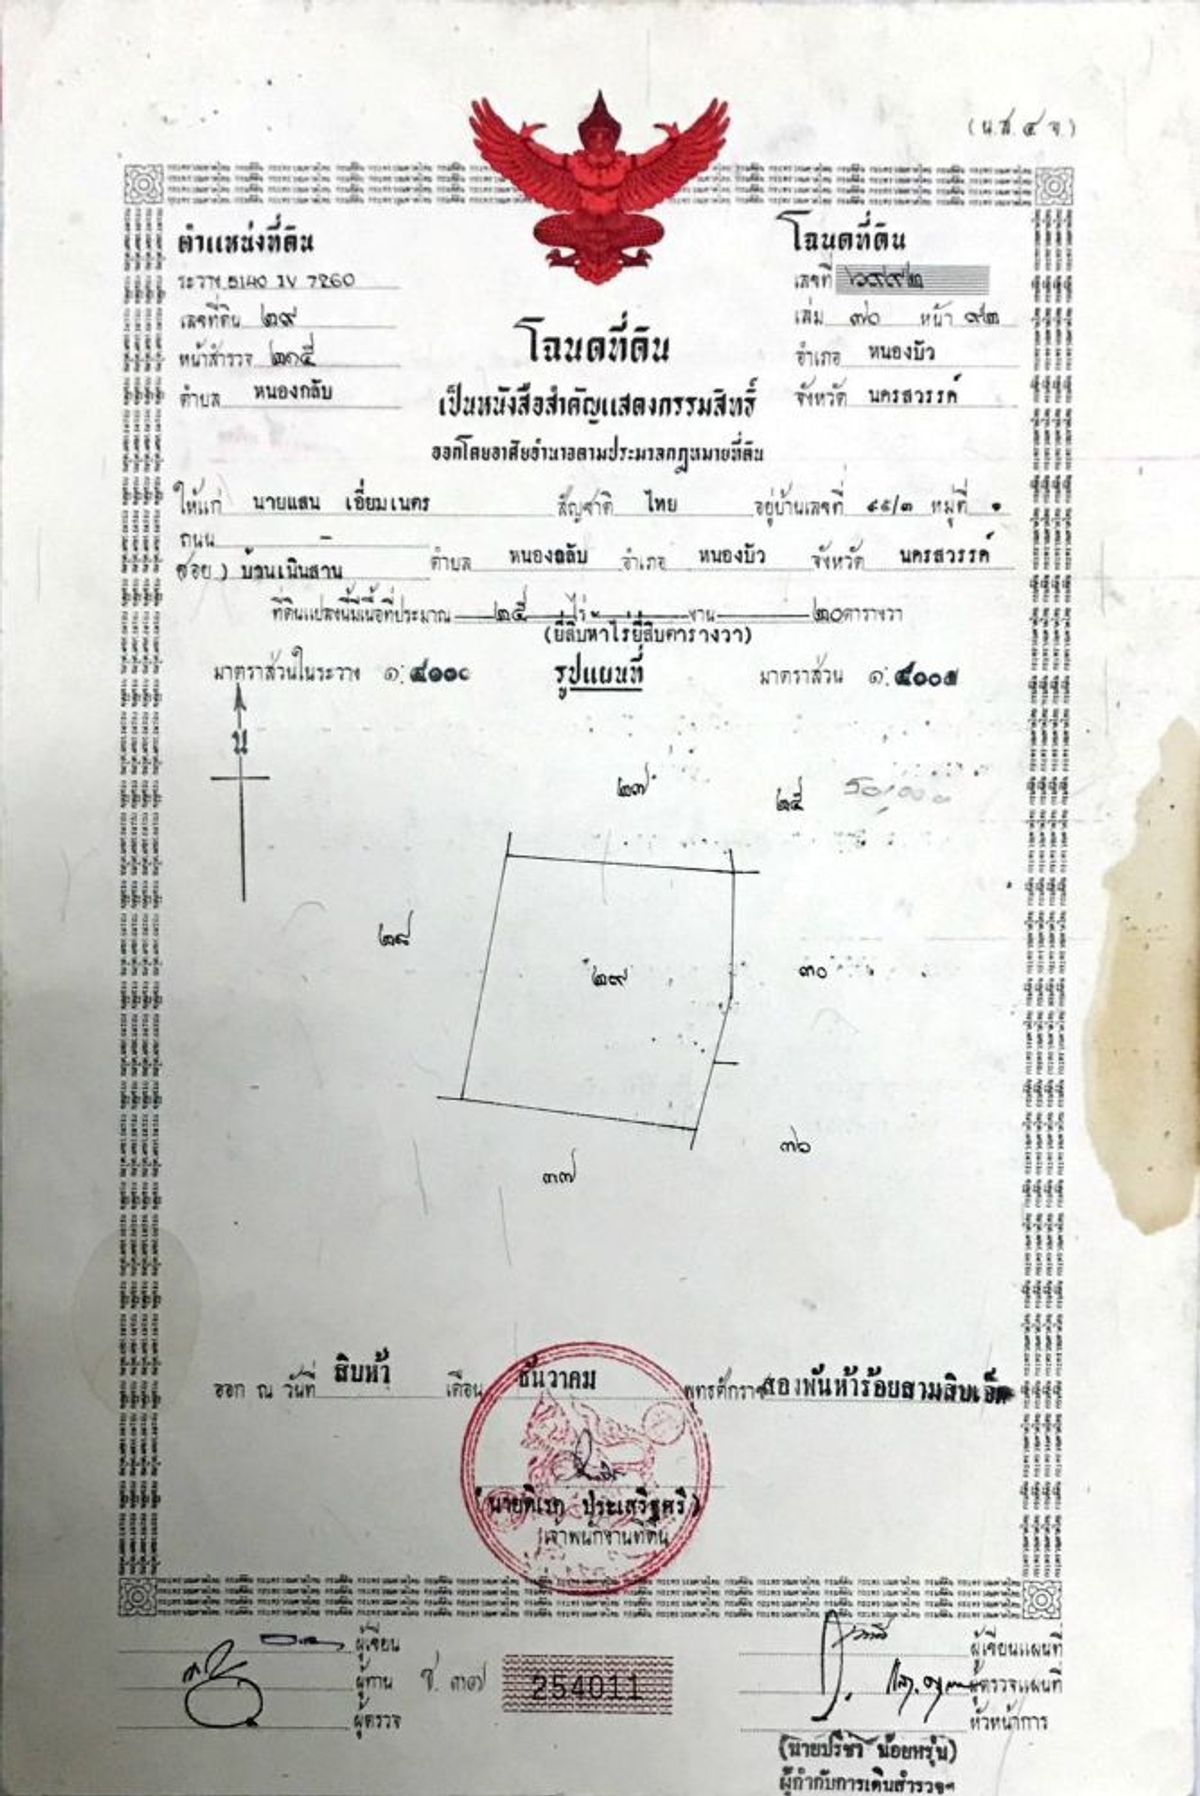 (น.ส. ๔ จ.)
ตำแหน่งที่ดิน
ระวาง 5140 IV 7260
เลขที่ดิน ๒๙
หน้าสำรวจ ๒๑๕
ตำบล หนองกลับ
โฉนดที่ดิน
เลขที่
เล่ม ๗๐ หน้า ๙๒
อำเภอ หนองบัว
จังหวัด นครสวรรค์
โฉนดที่ดิน
เป็นหนังสือสำคัญแสดงกรรมสิทธิ์
ออกโดยอาศัยอำนาจตามประมวลกฎหมายที่ดิน
ให้แก่ นายแสน เอี่ยมเนตร สัญชาติ ไทย อยู่บ้านเลขที่ ๔๕/๓ หมู่ที่ ๑
ถนน -
(ซอย) บ้านเนินสาน ตำบล หนองกลับ อำเภอ หนองบัว จังหวัด นครสวรรค์
ที่ดินแปลงนี้มีเนื้อที่ประมาณ ๒๕ ไร่ - งาน ๒๐ ตารางวา
(ยี่สิบห้าไร่ยี่สิบตารางวา)
มาตราส่วนในระวาง ๑:๔๐๐๐ รูปแผนที่ มาตราส่วน ๑:๔๐๐๐
น
๒๗
๒๕ 50,000
๒๘
๒๙
๓๐
๓๗
๓๖
ออก ณ วันที่ สิบห้า เดือน ธันวาคม พุทธศักราช สองพันห้าร้อยสามสิบเอ็ด
(นายดิเรก ประเสริฐศรี)
เจ้าพนักงานที่ดิน
ผู้เขียน
ผู้ทาน
ผู้ตรวจ
ช. ๓๑๗
254011
ผู้เขียนแผนที่
ผู้ตรวจแผนที่
หัวหน้าการ
(นายปรีชา น้อยหรุ่น)
ผู้กำกับการเดินสำรวจฯ